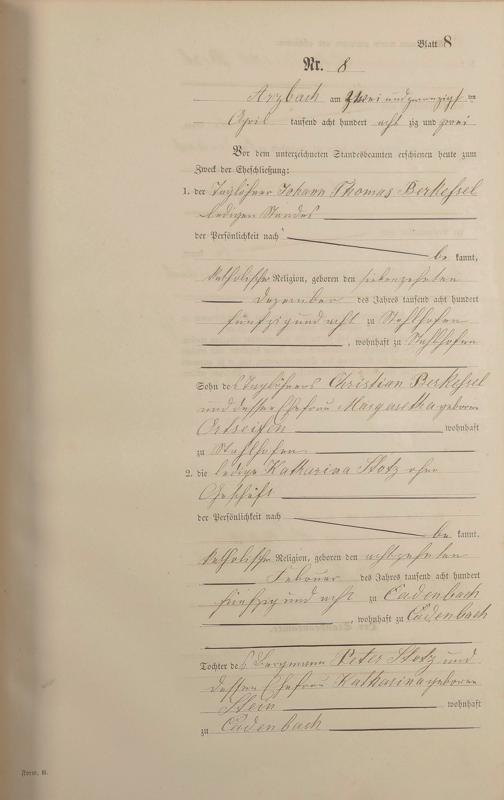 Blatt 8
Nr. 8
Arzbach am zwei und zwanzigsten
April tausend acht hundert acht zig und zwei
Vor dem unterzeichneten Standesbeamten erschienen heute zum
Zweck der Eheschließung:
1. der Taglöhner Johann Thomas Berkessel
ledigen Standes
der Persönlichkeit nach
be kannt,
katholischer Religion, geboren den siebenzehnten
Dezember des Jahres tausend acht hundert
fünfzig und acht zu Stahlhofen
, wohnhaft zu Stahlhofen
Sohn des Taglöhners Christian Berkessel
und dessen Ehefrau Margaretha geborene
Ortseifen wohnhaft
zu Stahlhofen
2. die ledige Katharina Stotz ohne
Geschäft
der Persönlichkeit nach
be kannt,
katholischer Religion, geboren den achtzehnten
Februar des Jahres tausend acht hundert
fünfzig und acht zu Cadenbach
, wohnhaft zu Cadenbach
Tochter des Bergmann Peter Stotz und
dessen Ehefrau Katharina geborene
Stein wohnhaft
zu Cadenbach
Form. B.